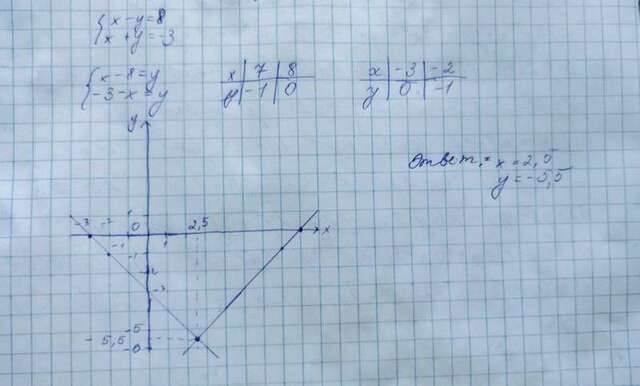 x - y = 8
x + y = -3
x - 8 = y
-3 - x = y
x | 7 | 8
y | -1 | 0
x | -3 | -2
y | 0 | -1
Ответ: x = 2,5
y = -5,5
y
-3 -2 1 0 2,5 x
-1 1
-1
-2
-3
-5
-5,5
-6